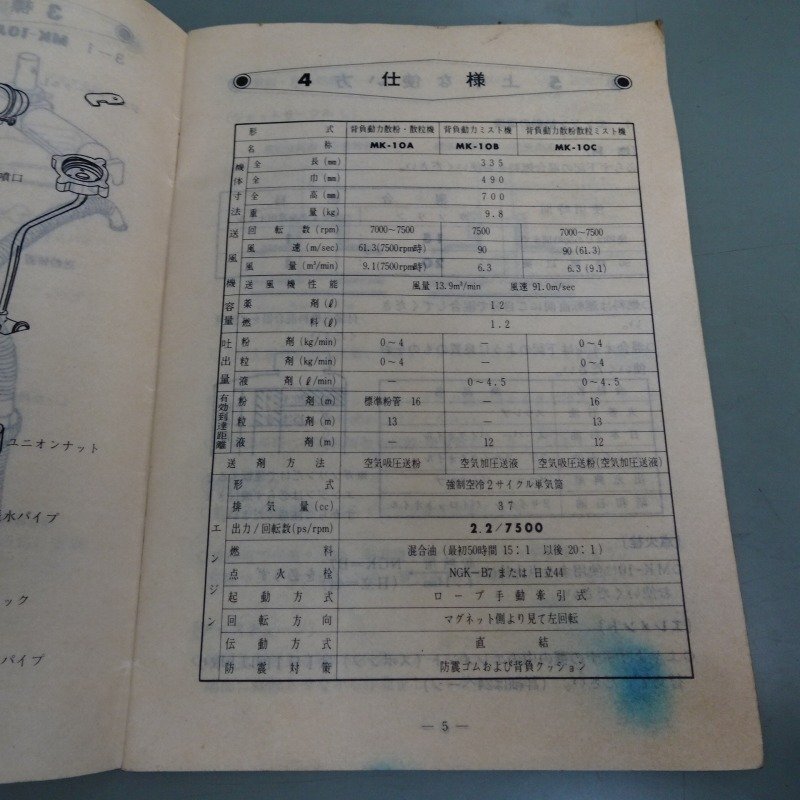 3－1 MK-10A
噴口
ユニオンナット
水パイプ
ック
パイプ
4 仕様
形式 背負動力散粉・散粒機 背負動力ミスト機 背負動力散粉散粒ミスト機
名称 MK-10A MK-10B MK-10C
機体寸法
全長(mm) 335
全巾(mm) 490
全高(mm) 700
重量(kg) 9.8
送風機
回転数(rpm) 7000～7500 7500 7000～7500
風速(m/sec) 61.3(7500rpm時) 90 90(61.3)
風量(m³/min) 9.1(7500rpm時) 6.3 6.3(9.1)
送風機性能 風量 13.9m³/min 風速 91.0m/sec
容量
薬剤(ℓ) 12
燃料(ℓ) 1.2
吐出量
粉剤(kg/min) 0～4 － 0～4
粒剤(kg/min) 0～4 － 0～4
液剤(ℓ/min) － 0～4.5 0～4.5
有効到達距離
粉剤(m) 標準粉管 16 － 16
粒剤(m) 13 － 13
液剤(m) － 12 12
送剤方法 空気吸圧送粉 空気加圧送液 空気吸圧送粉(空気加圧送液)
エンジン
形式 強制空冷2サイクル単気筒
排気量(cc) 37
出力/回転数(ps/rpm) 2.2/7500
燃料 混合油(最初50時間 15：1 以後 20：1)
点火栓 NGK－B7 または 日立44
起動方式 ロープ手動牽引式
回転方向 マグネット側より見て左回転
伝動方式 直結
防震対策 防震ゴムおよび背負クッション
－ 5 －